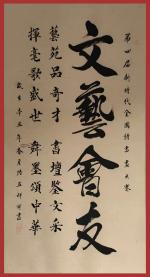 第四届新時代全國詩書畫大賽
文藝會友
藝苑品奇才 書壇鑒文采
揮毫歌盛世 舞墨頌中華
辛丑年